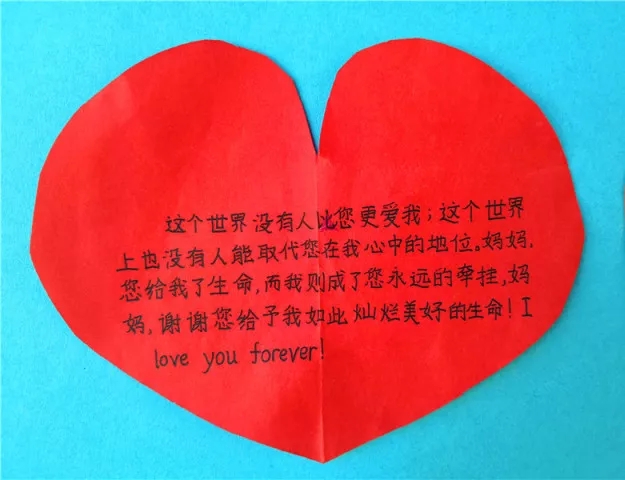 这个世界没有人比您更爱我；这个世界
上也没有人能取代您在我心中的地位。妈妈，
您给我了生命，而我则成了您永远的牵挂，妈
妈，谢谢您给予我如此灿烂美好的生命！I
love you forever!